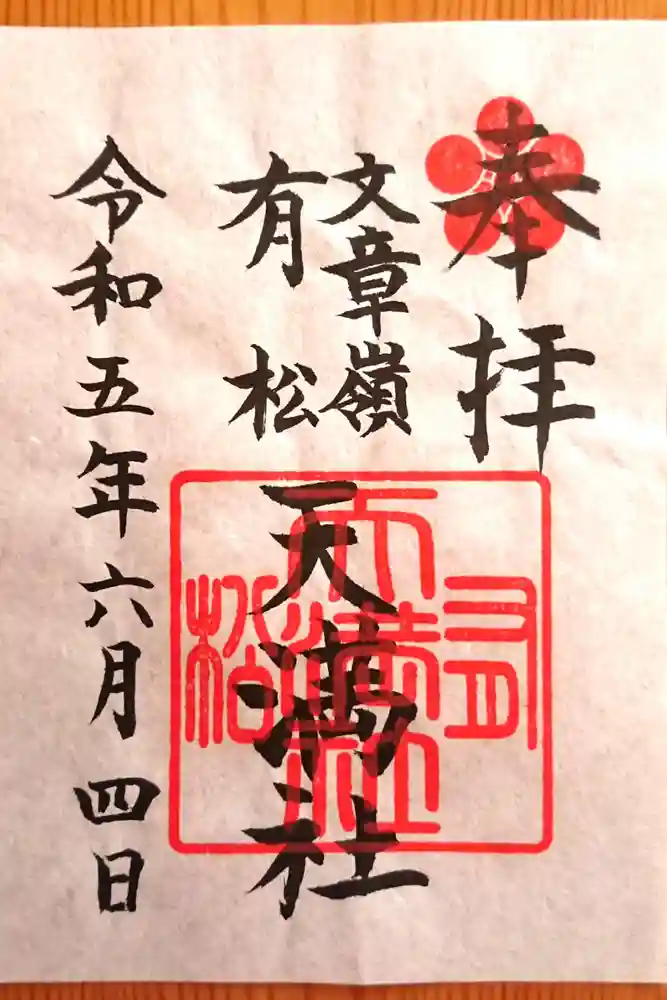 奉拝
文章嶺
有松
天満社
令和五年六月四日
有松
天満社